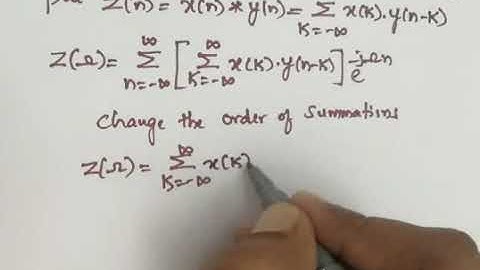 Z(n) = x(n) * y(n) = ∞ Σ K=-∞ x(K). y(n-K)
Z(Ω) = ∞ Σ n=-∞ [ ∞ Σ K=-∞ x(K). y(n-K) ] e^-jΩn
change the order of summations
Z(Ω) = ∞ Σ K=-∞ x(K)